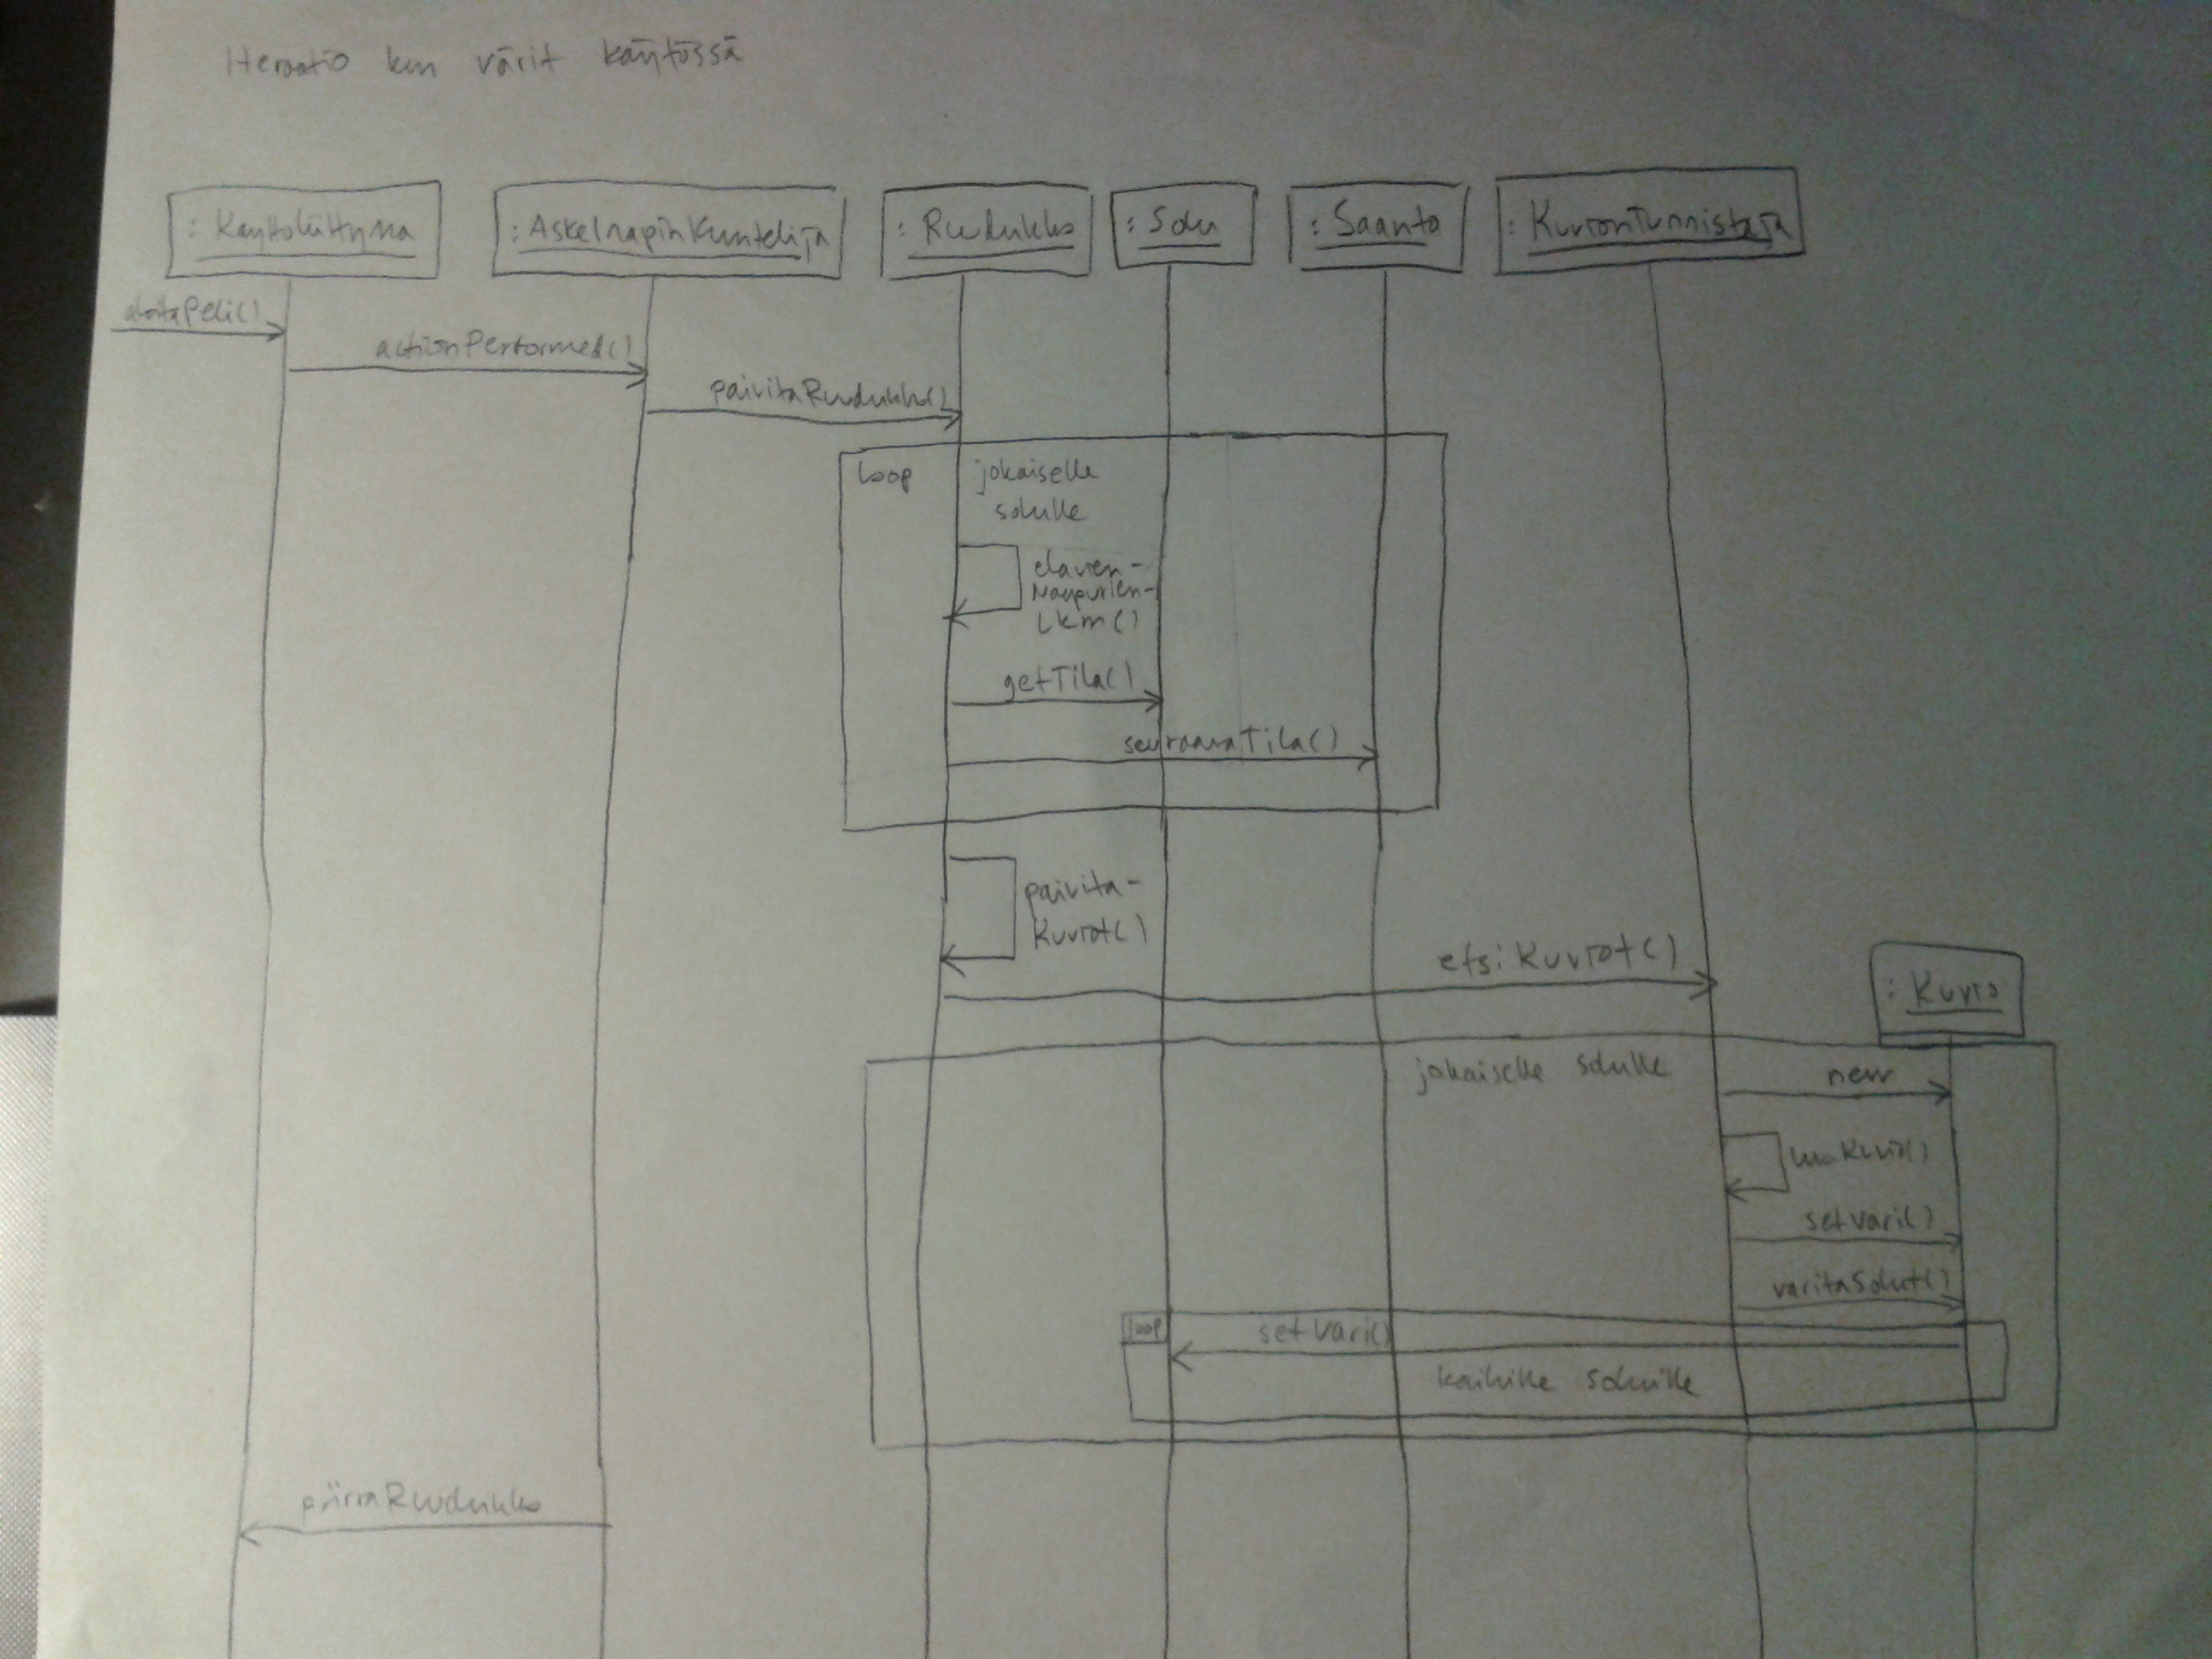 Iteraatio kun värit käytössä
: Kayttoliittyma
: AskelnapinKuuntelija
: Ruudukko
: Solu
: Saanto
: KuvionTunnistaja
aloitaPeli()
actionPerformed()
paivitaRuudukko()
loop
jokaiselle
solulle
elavien-
Naapurien-
Lkm()
getTila()
seuraavaTila()
paivita-
Kuviot()
etsiKuviot()
: Kuvio
jokaiselle solulle
new
setVari()
varitaSolut()
loop
setVari()
kaikille soluille
piirraRuudukko